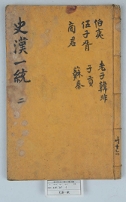 伯夷
老子韓非
伍子胥
子貢
商君
蘇秦
史漢一統 二